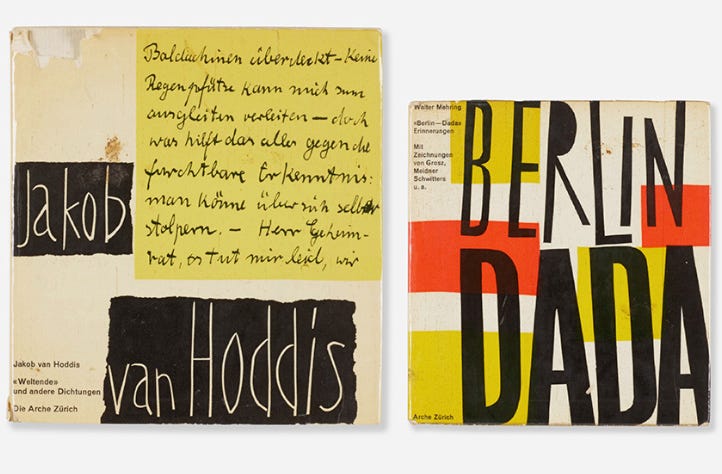 Baldachinen überdeckt – Keine
Regenpfütze kann mich zum
ausgleiten verleiten – doch
was hilft das alles gegen die
furchtbare Erkenntnis:
man könne über sich selbst
stolpern. – Herr Geheim-
rat, es tut mir leid, wir
Jakob
van Hoddis
Jakob van Hoddis
«Weltende»
und andere Dichtungen
Die Arche Zürich
Walter Mehring
«Berlin—Dada»
Erinnerungen
Mit
Zeichnungen
von Grosz,
Meidner
Schwitters
u. a.
BERLIN
DADA
Arche Zürich